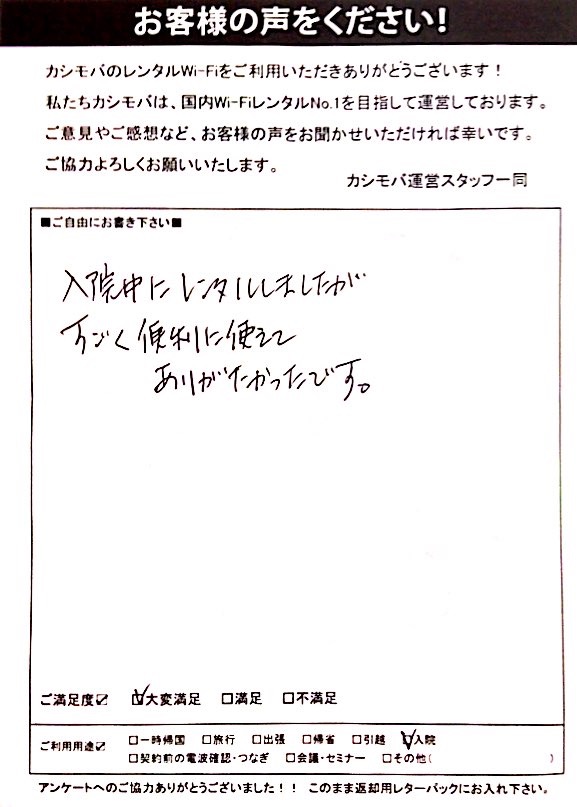 お客様の声をください!
カシモバのレンタルWi-Fiをご利用いただきありがとうございます!
私たちカシモバは、国内Wi-FiレンタルNo.1を目指して運営しております。
ご意見やご感想など、お客様の声をお聞かせいただければ幸いです。
ご協力よろしくお願いいたします。
カシモバ運営スタッフ一同
■ご自由にお書き下さい■
入院中にレンタルしましたが
すごく便利に使えて
ありがたかったです。
ご満足度☑ ☑大変満足 □満足 □不満足
ご利用用途☑ □一時帰国 □旅行 □出張 □帰省 □引越 ☑入院
□契約前の電波確認・つなぎ □会議・セミナー □その他( )
アンケートへのご協力ありがとうございました!! このまま返却用レターパックにお入れ下さい。